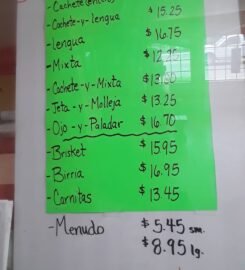 -Cachete $15.25
-Cachete-y-lengua $16.75
-lengua
-Mixta
-Cachete-y-Mixta $13.50
-Jeta-y-Molleja $13.25
-Ojo-y-Paladar $16.70
-Brisket $15.95
-Birria $16.95
-Carnitas $13.45
-Menudo $5.45 sm.
$8.95 lg.